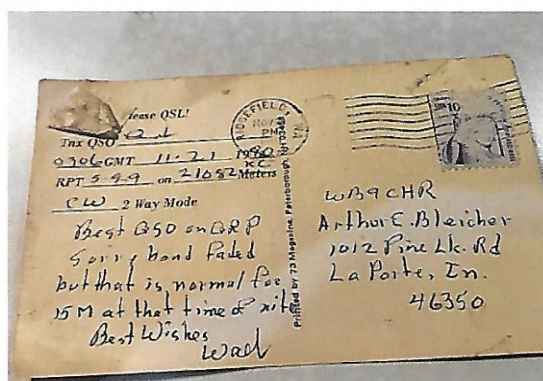 lease QSL!
Tnx QSO
0306 GMT 11-21 1980
KC
RPT 5-9-9 on 21082 Meters
CW 2 Way Mode
Best QSO on QRP
Sorry band faded
but that is normal for
15M at that time of nite
Best Wishes
Wad
Printed by 73 Magazine, Peterborough, NH 03449
RIDGEFIELD, WA
NOV
PM
10
WB9CHR
Arthur E. Bleicher
1012 Pine Lk. Rd
La Porte, In.
46350